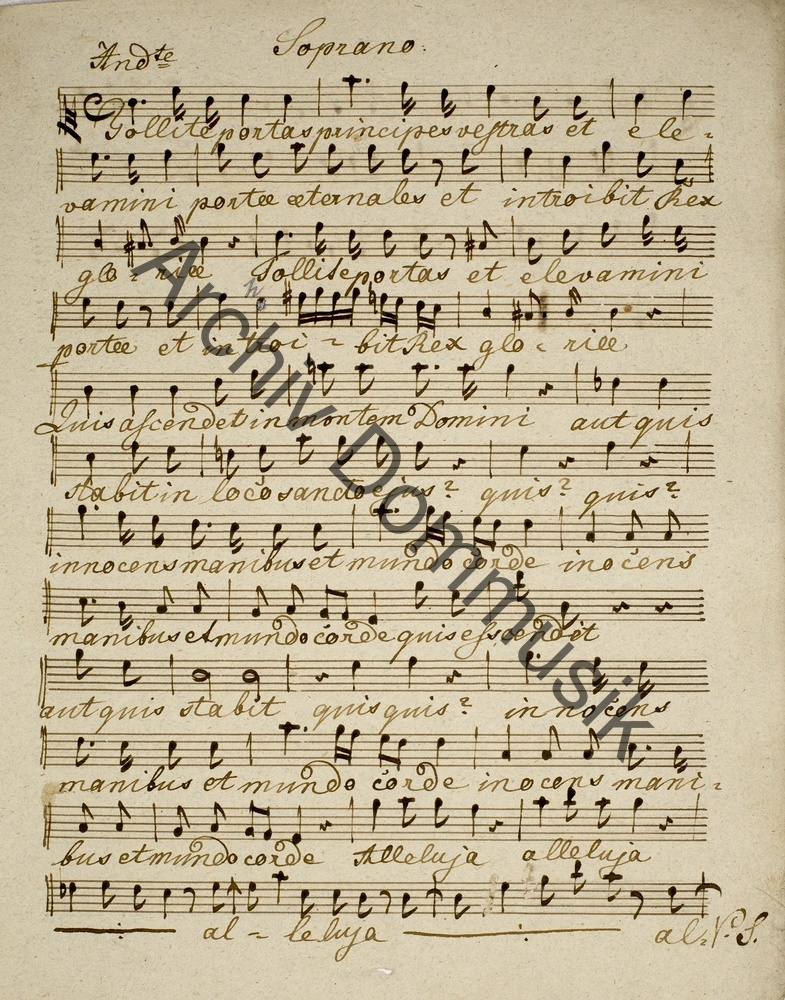 Andte Soprano.
Tollite portas principes vestras et ele-
vamini portæ æternales et introibit Rex
glo-riæ Tollite portas et elevamini
portæ et introi-bit Rex glo-riæ
Quis ascendet in montem Domini aut quis
stabit in loco sancto ejus? quis? quis?
innocens manibus et mundo corde inocens
manibus et mundo corde quis esscendet
aut quis stabit quis quis? innocens
manibus et mundo corde inocens mani-
bus et mundo corde Alleluja alleluja
al-leluja al- V. S.
Archiv Dommusik